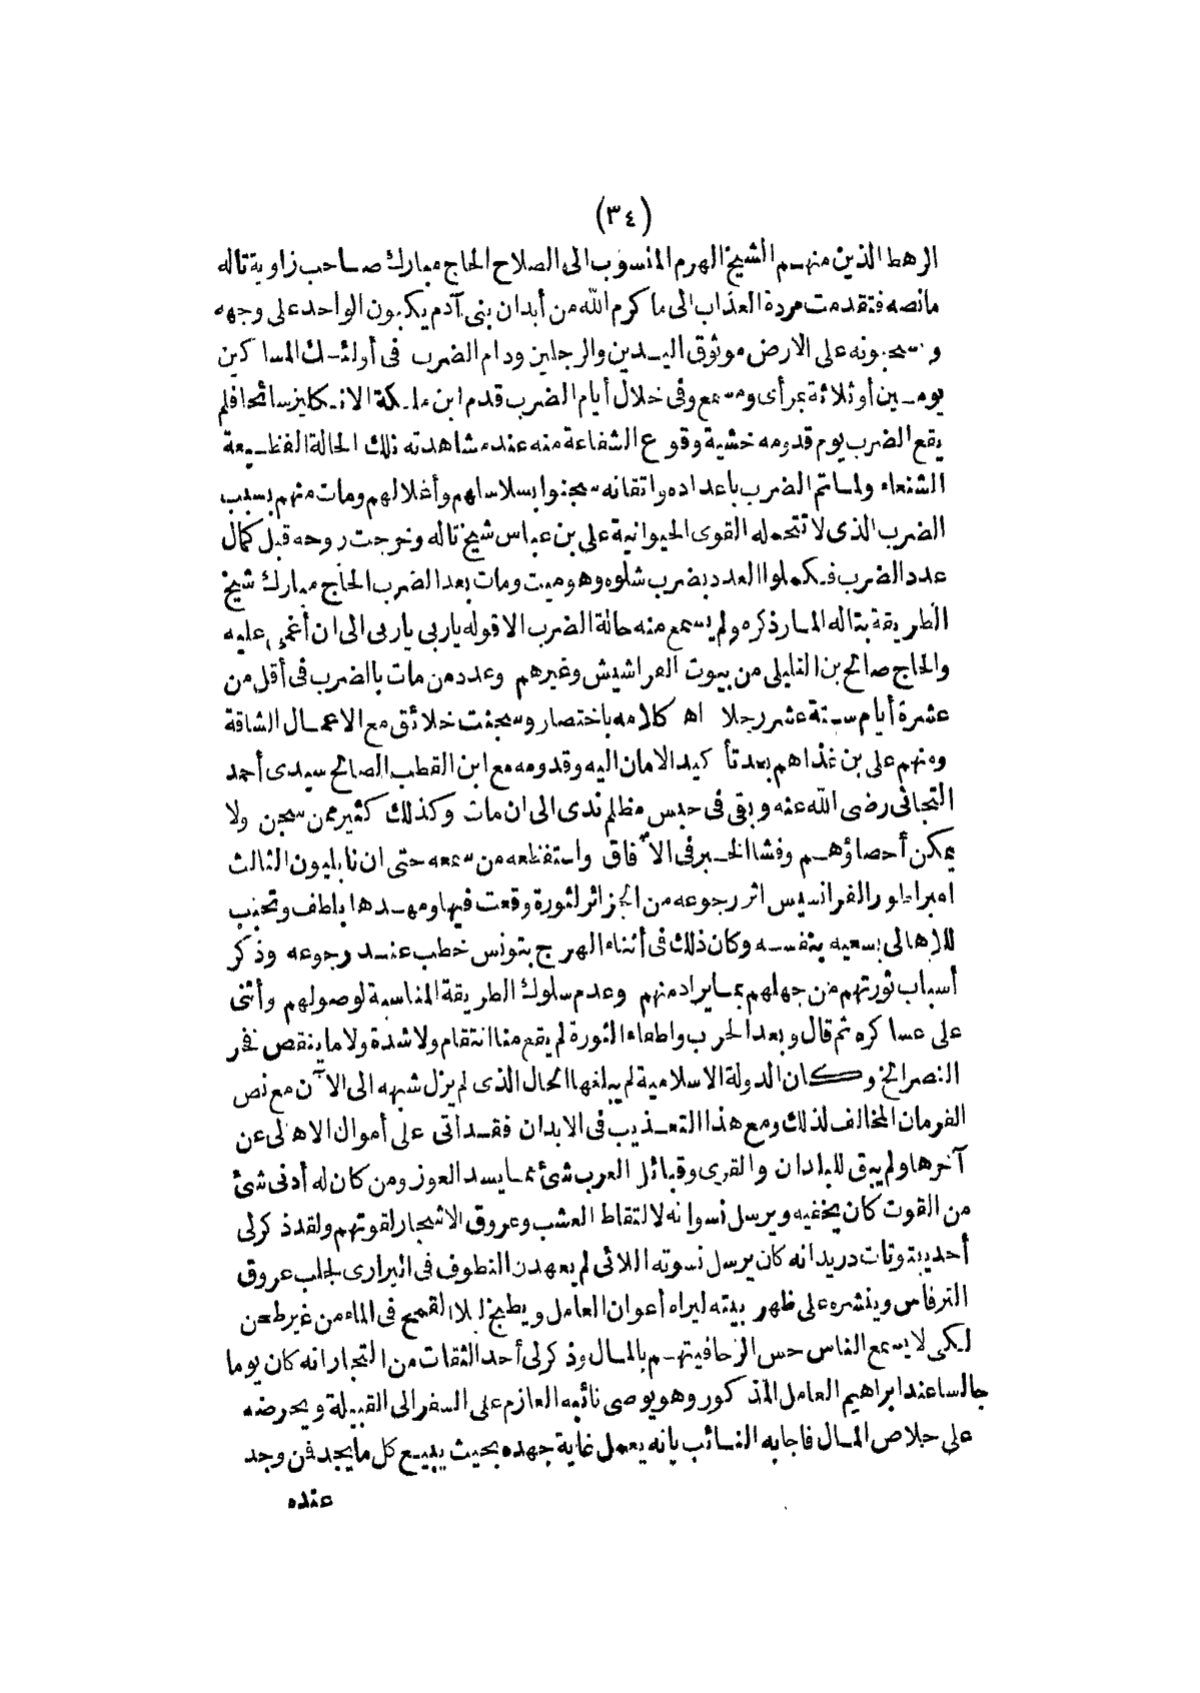 (٣٤)
الرهط الذين منهم الشيخ الهرم المنسوب الى الصلاح الحاج مبارك صاحب زاوية تاله
مانصه فتقدمت مردة العذاب الى ما كرم الله من أبدان بنى آدم يكبون الواحد على وجهه
ويسحبونه على الارض موثوق اليدين والرجلين ودام الضرب فى أولئك المساكين
يومين أو ثلاثة بمرأى ومسمع وفى خلال أيام الضرب قدم ابن ملكة الانكليز سائحا فلم
يقع الضرب يوم قدومه خشية وقوع الشفاعة منه عند مشاهدته تلك الحالة الفظيعة
الشنعاء ولما تم الضرب باعداده واتقانه سجنوا بسلاسلهم وأغلالهم ومات منهم بسبب
الضرب الذى لا تتحمله القوى الحيوانية على بن عباس شيخ تاله وخرجت روحه قبل كمال
عدد الضرب فكملوا العدد بضرب شلوه وهو ميت ومات بعد الضرب الحاج مبارك شيخ
الطريقة بتاله المار ذكره ولم يسمع منه حالة الضرب الا قوله ياربى ياربى الى ان أغمى عليه
والحاج صالح بن النليلى من بيوت الفراشيش وغيرهم وعدد من مات بالضرب فى أقل من
عشرة أيام ستة عشر رجلا اه كلامه باختصار وسجنت خلائق مع الاعمال الشاقة
ومنهم على بن غذاهم بعد تأكيد الامان اليه وقدومه مع ابن القطب الصالح سيدى أحمد
التجانى رضى الله عنه وبقى فى حبس مظلم ندى الى ان مات وكذلك كثير ممن سجن ولا
يمكن أحصاؤهم وفشا الخبر فى الآفاق واستفظعه من سمعه حتى ان نابليون الثالث
امبراطور الفرانسيس اثر رجوعه من الجزائر لثورة وقعت فيها ومهدها بلطف وتحبب
للاهالى بسعيه بنفسه وكان ذلك فى أثناء الهرج بتونس خطب عند رجوعه وذكر
أسباب ثورتهم من جهلهم بما يراد منهم وعدم سلوك الطريقة المناسبة لوصولهم وأثنى
على عساكره ثم قال وبعد الحرب واطفاء الثورة لم يقع منا انتقام ولا شدة ولا ما ينقص فخر
النصر الخ وكان الدولة الاسلامية لم يبلغها الحال الذى لم يزل شبهه الى الآن مع نص
الفرمان المخالف لذلك ومع هذا التعذيب فى الابدان فقد أتى على أموال الاهالى عن
آخرها ولم يبق للبلدان والقرى وقبائل العرب شئ مما يسد العوز ومن كان له أدنى شئ
من القوت كان يخفيه ويرسل نسوانه لالتقاط العشب وعروق الاشجار لقوتهم ولقد ذكر لى
أحد بيتوتات دريد انه كان يرسل نسوته اللائى لم يعهدن التطوف فى البرارى لجلب عروق
الترفاس وينشره على ظهر بيته ليراه أعوان العامل ويطبخ ليلا القمح فى الماء من غير طحن
لكى لا يسمع الناس حس الرحا فيتهم بالمال وذكر لى أحد الثقات من التجار انه كان يوما
جالسا عند ابراهيم العامل المذكور وهو يوصى نائبه العازم على السفر الى القبيلة ويحرضه
على خلاص المال فاجابه النائب بانه يعمل غاية جهده بحيث يبيع كل ما يجد فمن وجد
عنده